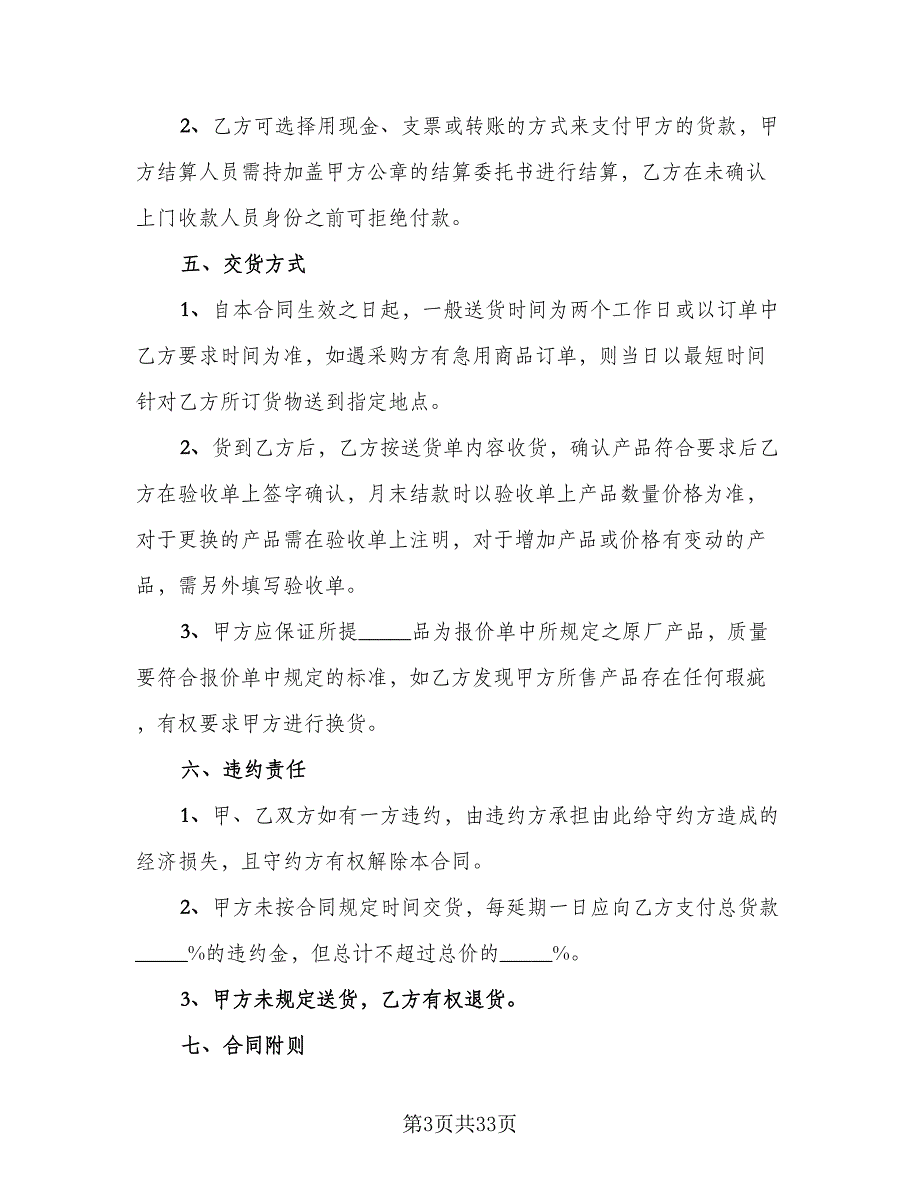 2、乙方可选择用现金、支票或转账的方式来支付甲方的货款，甲
方结算人员需持加盖甲方公章的结算委托书进行结算，乙方在未确认
上门收款人员身份之前可拒绝付款。
五、交货方式
1、自本合同生效之日起，一般送货时间为两个工作日或以订单中
乙方要求时间为准，如遇采购方有急用商品订单，则当日以最短时间
针对乙方所订货物送到指定地点。
2、货到乙方后，乙方按送货单内容收货，确认产品符合要求后乙
方在验收单上签字确认，月末结款时以验收单上产品数量价格为准，
对于更换的产品需在验收单上注明，对于增加产品或价格有变动的产
品，需另外填写验收单。
3、甲方应保证所提_____品为报价单中所规定之原厂产品，质量
要符合报价单中规定的标准，如乙方发现甲方所售产品存在任何瑕疵
，有权要求甲方进行换货。
六、违约责任
1、甲、乙双方如有一方违约，由违约方承担由此给守约方造成的
经济损失，且守约方有权解除本合同。
2、甲方未按合同规定时间交货，每延期一日应向乙方支付总货款
_____%的违约金，但总计不超过总价的_____%。
3、甲方未规定送货，乙方有权退货。
七、合同附则
第3页共33页